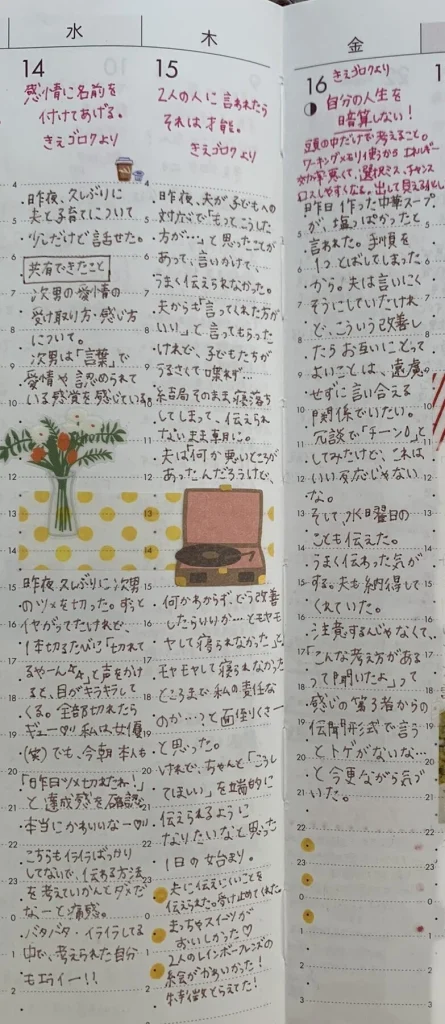 水
14
感情に名前を
付けてあげる。
きえゴロクより
・昨夜、久しぶりに
夫と子育てについて
少しだけど話せた。
共有できたこと
次男の愛情の
受け取り方・感じ方
について。
次男は「言葉」で
愛情や認められて
いる感覚を感じている。
昨夜、久しぶりに次男
のツメを切った。ずっと
イヤがってたけれど、
1本切るたびに「切れて
るやーん」と声をかけ
ると、目がキラキラして
くる。全部切れたら
ギュー♡私は女優
(笑)でも、今朝本人も
「昨日ツメ切れたね!」
と達成感を確認。
本当にかわいいなー♡
こちらもイライラばっかり
してないで、伝わる方法
を考えていかんとダメだ
なーと痛感。
バタバタ・イライラしてる
中で、考えられた自分
もエライー!!
木
15
2人の人に言われたら
それは才能。
きえゴロクより
・昨夜、夫が子どもへの
対応で「もっとこうした
方が…」と思ったことが
あって、言いかけて、
うまく伝えられなかった。
夫からも「言ってくれた方が
いい」と言ってもらった
けれど、子どもたちが
うるさくて喋れず…
結局そのまま寝落ち
してしまって、伝えられ
ないまま朝に。
夫は何か悪いところが
あったんだろうけど、
何かわからず、どう改善
したらいいか…ともやモ
ヤして寝られなかった
モヤモヤして寝られなかった
ところまで私の責任な
のか…?と面倒くさー
と思った。
けれど、ちゃんと「こうし
てほしい」を端的に
伝えられるように
なりたいなと思った
1日の始まり。
夫に伝えにくいことを
伝えられた。受け止めてくれた
まっちゃスイーツが
おいしかった♡
2人のレインボーフレンズの
絵がかわいかった!
特徴とらえてた!
金
16
きえゴロクより
自分の人生を
暗算しない!
頭の中だけで考えること。
ワーキングメモリ使うから エネルギー
効率悪くて、選択ミス、チャンス
ロスしやすくなる。出して見える化
昨日作った中華スープ
が、塩っぽかったと
言われた。手順を
1つとばしてしまった
から。夫は言いにく
そうにしていたけれ
ど、こういう改善し
たらお互いにとって
よいことは、遠慮
せずに言い合える
関係でいたい。
冗談で「チーン」と
してみたけど、これは
いい反応じゃない
な。
そして、水曜日の
ことも伝えた。
うまく伝わった気が
する。夫も納得して
くれていた。
注意するんじゃなくて、
「こんな考え方がある
って聞いたよ」って
感じの第3者からの
伝聞形式で言う
とトゲがないな…
と今更ながら気づ
いた。